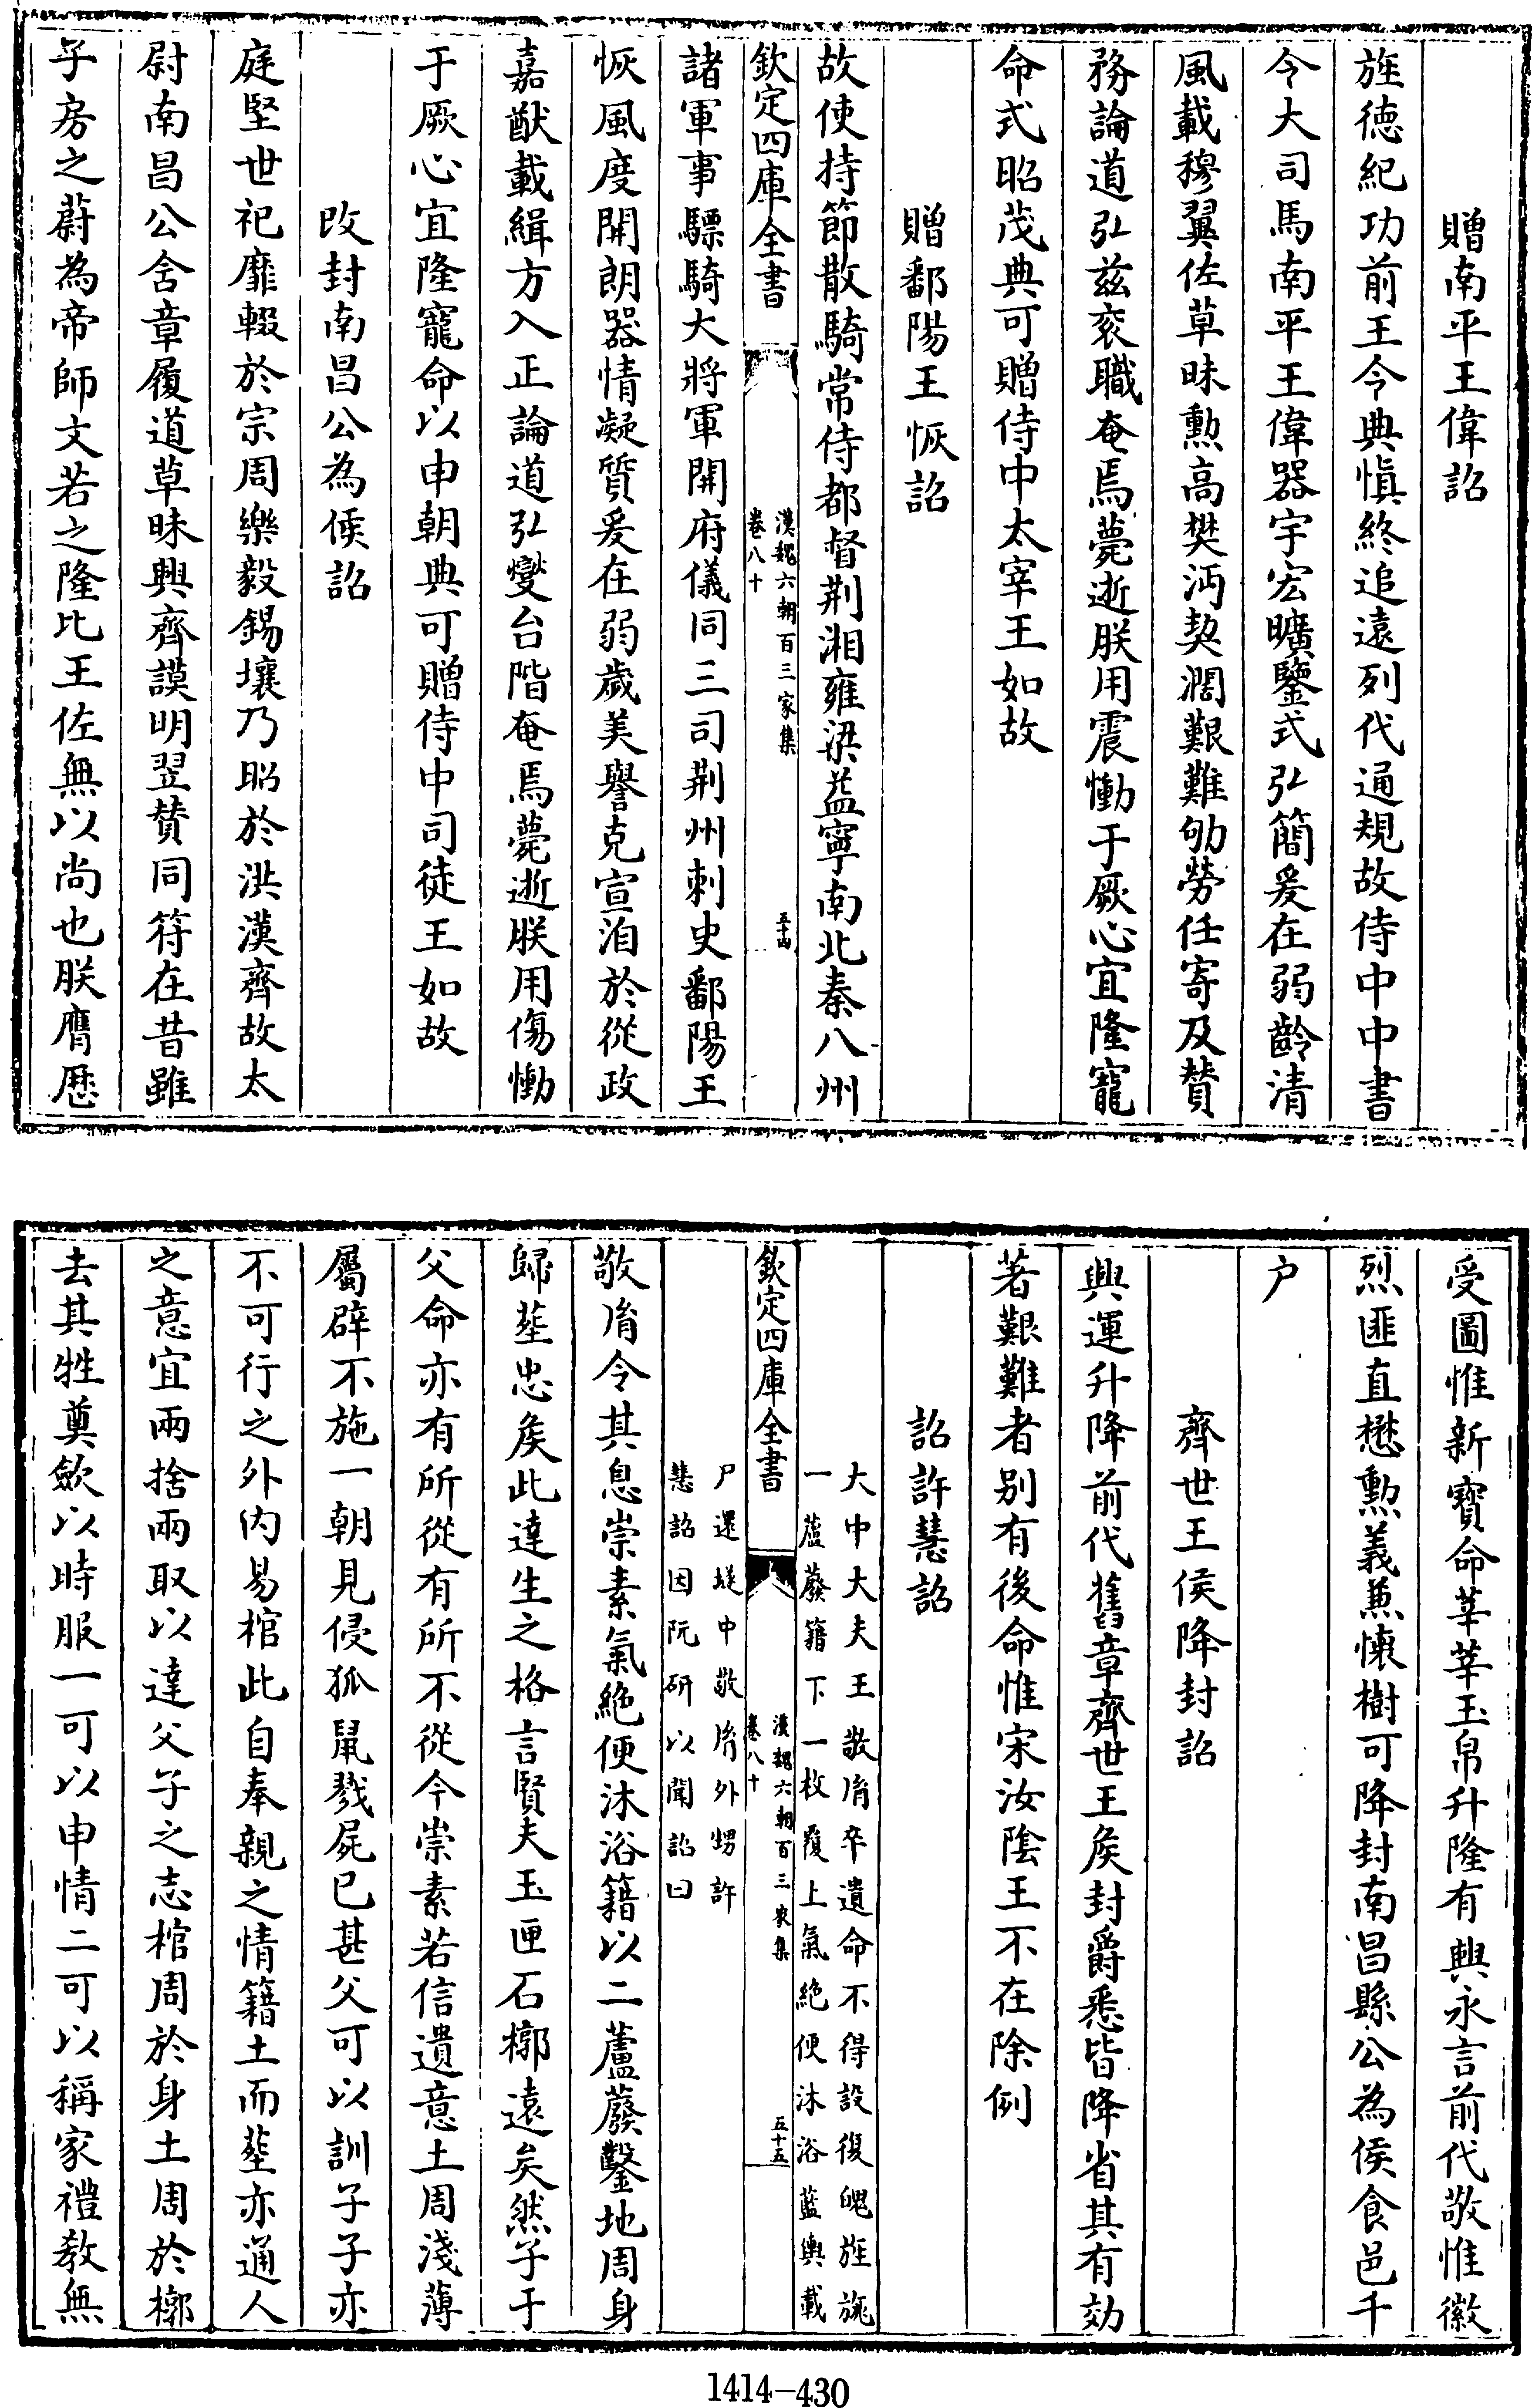 贈南平王偉詔
旌德紀功前王令典慎終追遠列代通規故侍中中書
令大司馬南平王偉器宇宏曠鑒式弘簡爰在弱齡清
風載穆翼佐草昧勲高樊沔契濶艱難劬勞任寄及贊
務論道弘兹衮職奄焉薨逝朕用震慟于厥心宜隆寵
命式昭茂典可贈侍中太宰王如故
贈鄱陽王恢詔
故使持節散騎常侍都督荆湘雍梁益寧南北秦八州
欽定四庫全書
漢魏六朝百三家集
卷八十
五十四
諸軍事驃騎大將軍開府儀同三司荆州刺史鄱陽王
恢風度開朗器情凝質爰在弱歲美譽克宣洎於從政
嘉猷載緝方入正論道弘燮台階奄焉薨逝朕用傷慟
于厥心宜隆寵命以申朝典可贈侍中司徒王如故
改封南昌公為侯詔
庭堅世祀靡輟於宗周樂毅錫壤乃昭於洪漢齊故太
尉南昌公含章履道草昧興齊謨明翌贊同符在昔雖
子房之蔚為帝師文若之隆比王佐無以尚也朕膺厯
受圖惟新寶命莘莘玉帛升隆有典永言前代敬惟徽
烈匪直懋勲義兼懷樹可降封南昌縣公為侯食邑千
户
齊世王侯降封詔
興運升降前代舊章齊世王侯封爵悉皆降省其有効
著艱難者别有後命惟宋汝隂王不在除例
詔許慧詔
大中大夫王敬胤卒遺命不得設復魄旌旐
一蘆藂籍下一枚覆上氣絶便沐浴藍輿載
欽定四庫全書
漢魏六朝百三家集
卷八十
五十五
尸還塋中敬胤外甥許
慧詔因阮研以聞詔曰
敬胤令其息崇素氣絶便沐浴籍以二蘆藂鑿地周身
歸塟忠矦此達生之格言賢夫玉匣石槨遠矣然子于
父命亦有所從有所不從今崇素若信遺意土周淺薄
屬辟不施一朝見侵狐鼠戮屍已甚父可以訓子子亦
不可行之外内易棺此自奉親之情籍土而塟亦通人
之意宜兩捨兩取以達父子之志棺周於身土周於槨
去其牲奠斂以時服一可以申情二可以稱家禮教無
1414—430